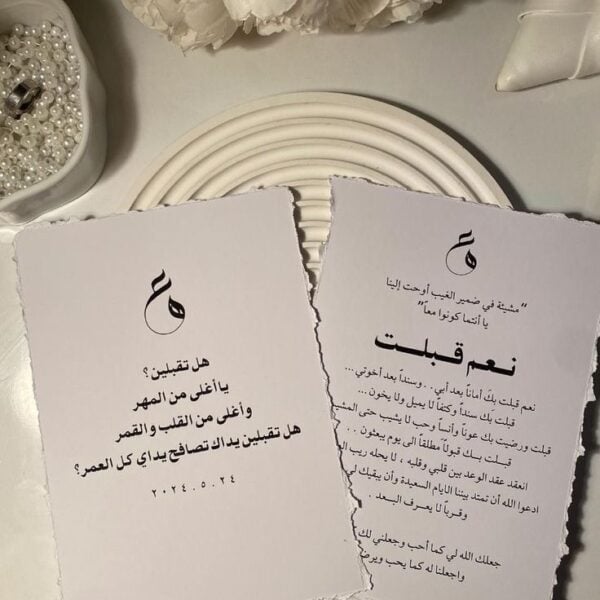 هل تقبلين؟
يا أغلى من المهر
وأغلى من القلب والقمر
هل تقبلين يداك تصافح يداي كل العمر؟
٢٠٢٤.٥.٢٤
"مشيئة في ضمير الغيب أوحت إلينا
يا أنتما كونوا معاً"
نعم قبلت
نعم قبلت بكَ أماناً بعد أبي.. وسنداً بعد أخوتي...
قبلت بَك سنداً وكتفاً لا يميل ولا يخون...
قبلت ورضيت بك عوناً وأنساً وحب لا يشيب حتى
قبلت بك قبولاً مطلقاً الى يوم يبعثون..
انعقد عقد الوعد بين قلبي وقلبه، لا يحله ريب
ادعوا الله أن تمتد بيننا الايام السعيدة وأن يبقيك لي
وقرباً لا يعرف البعد.
جعلك الله لي كما أحب وجعلني لك
واجعلنا له كما يحب